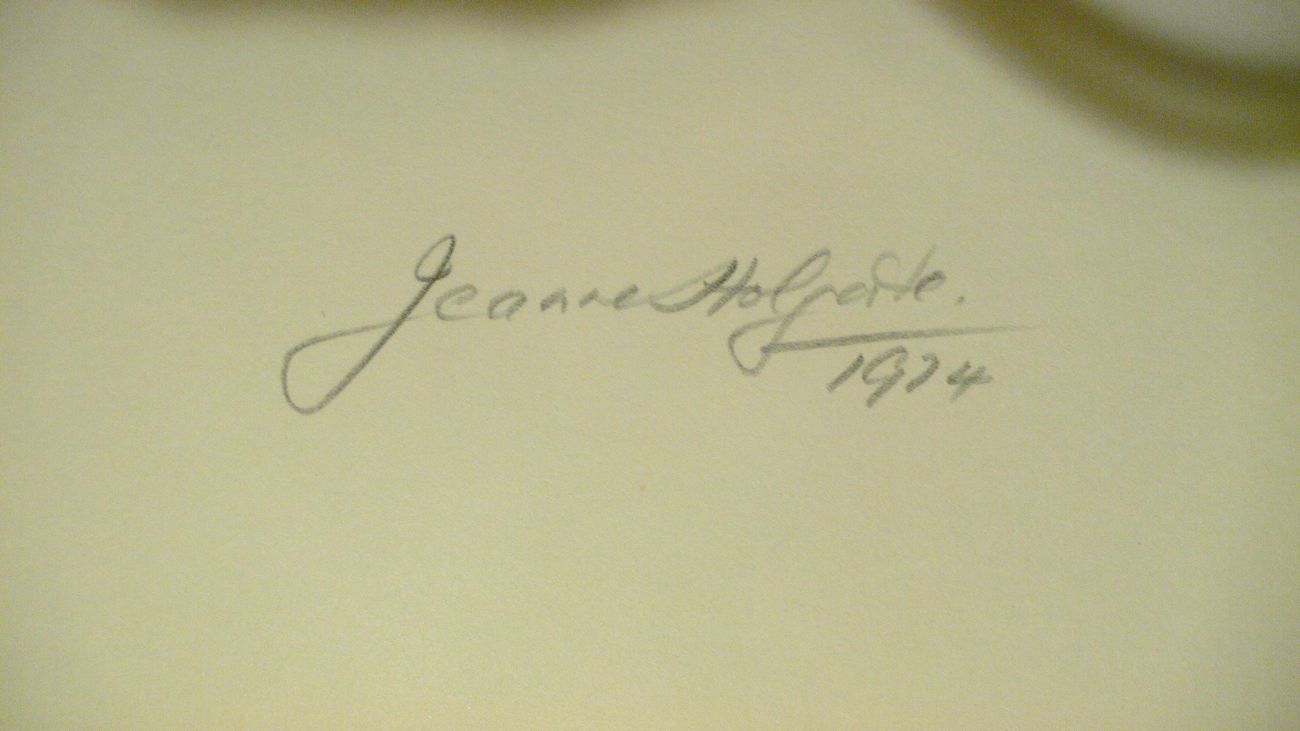 Jeanne Holgate.
1974